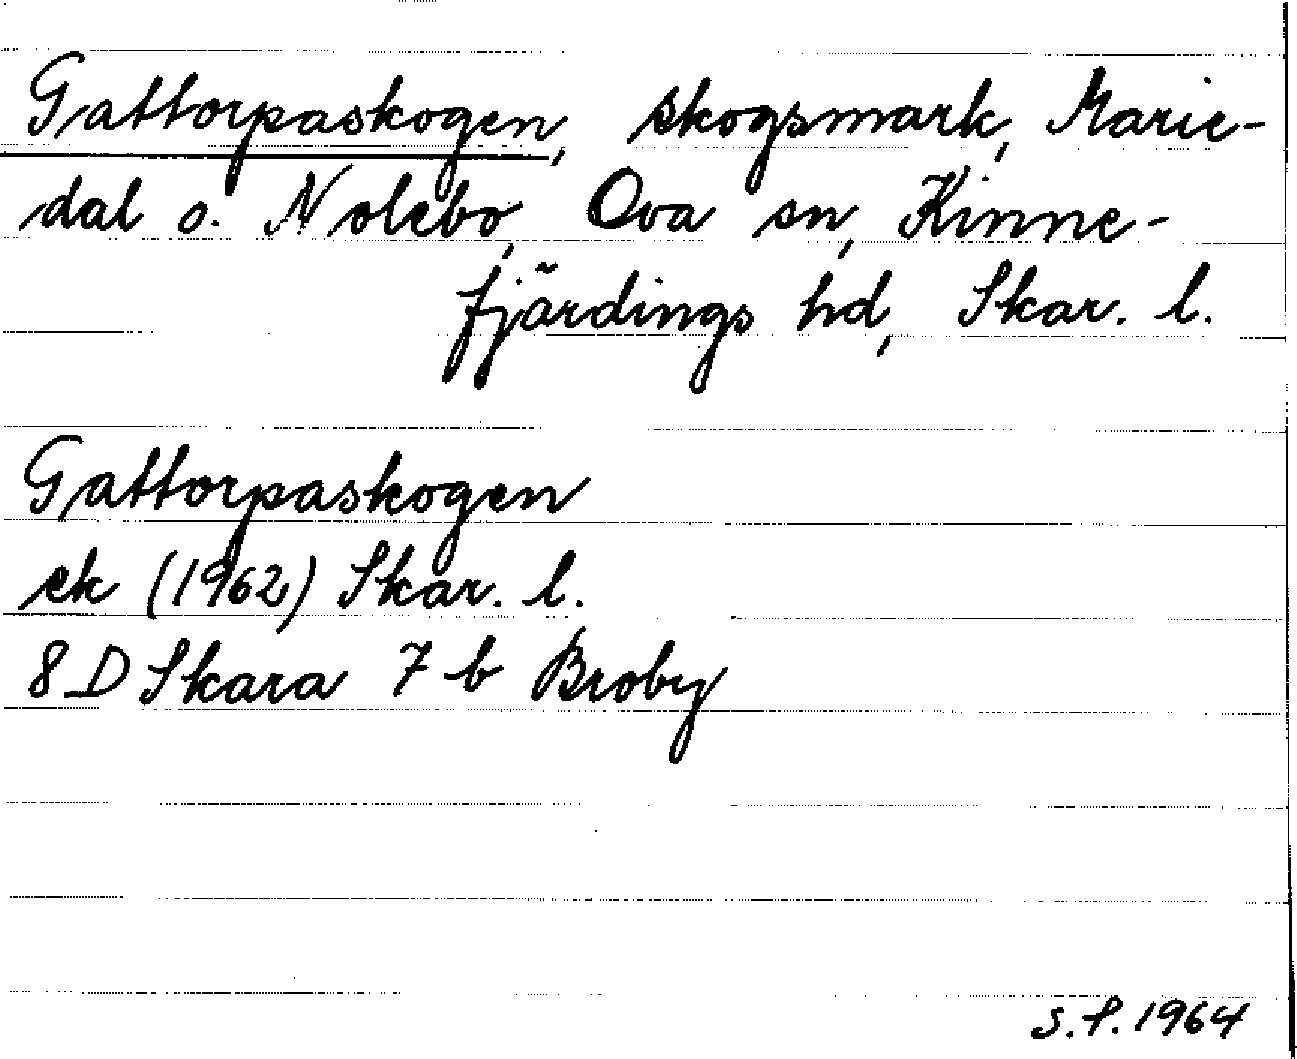 Gattorpaskogen, skogsmark, Marie-
dal o. Nolebo, Ova sn, Kinne-
fjärdings hd, Skar. l.
Gattorpaskogen
ek (1962) Skar. l.
8 D Skara 7 b Broby
S.P. 1964